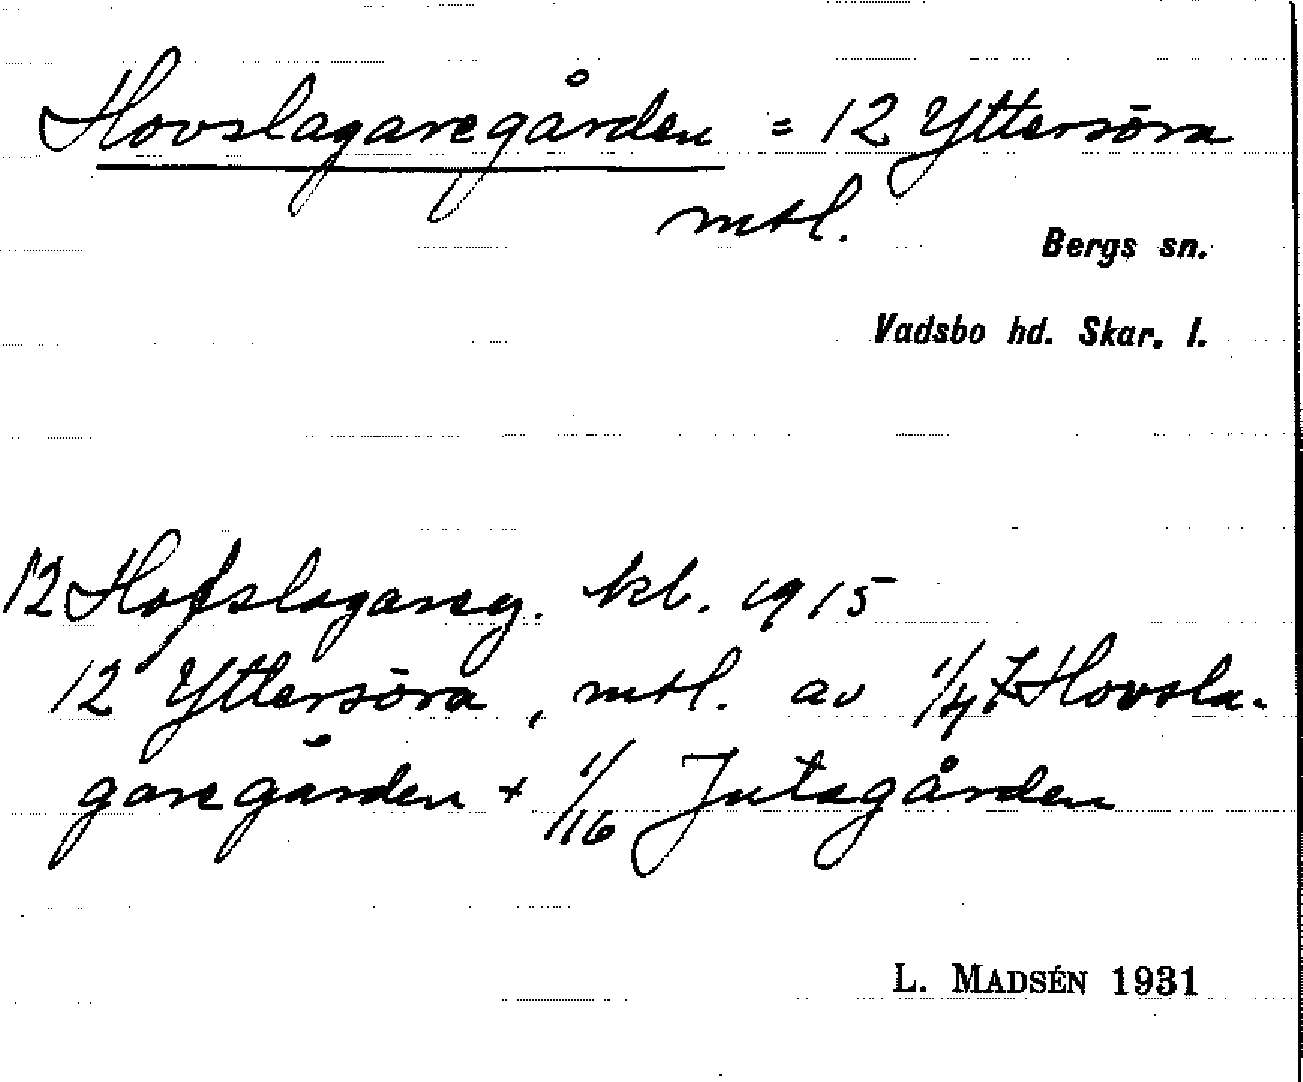 Hovslagaregården = 12 Yttersöra
mtl.
Bergs sn.
Vadsbo hd. Skar. l.
12 Hofslagareg. kb. 1915
12 Yttersöra, mtl. av 1/4 7 Hovsla-
garegården + 1/16 Jutagården
L. MADSÉN 1931